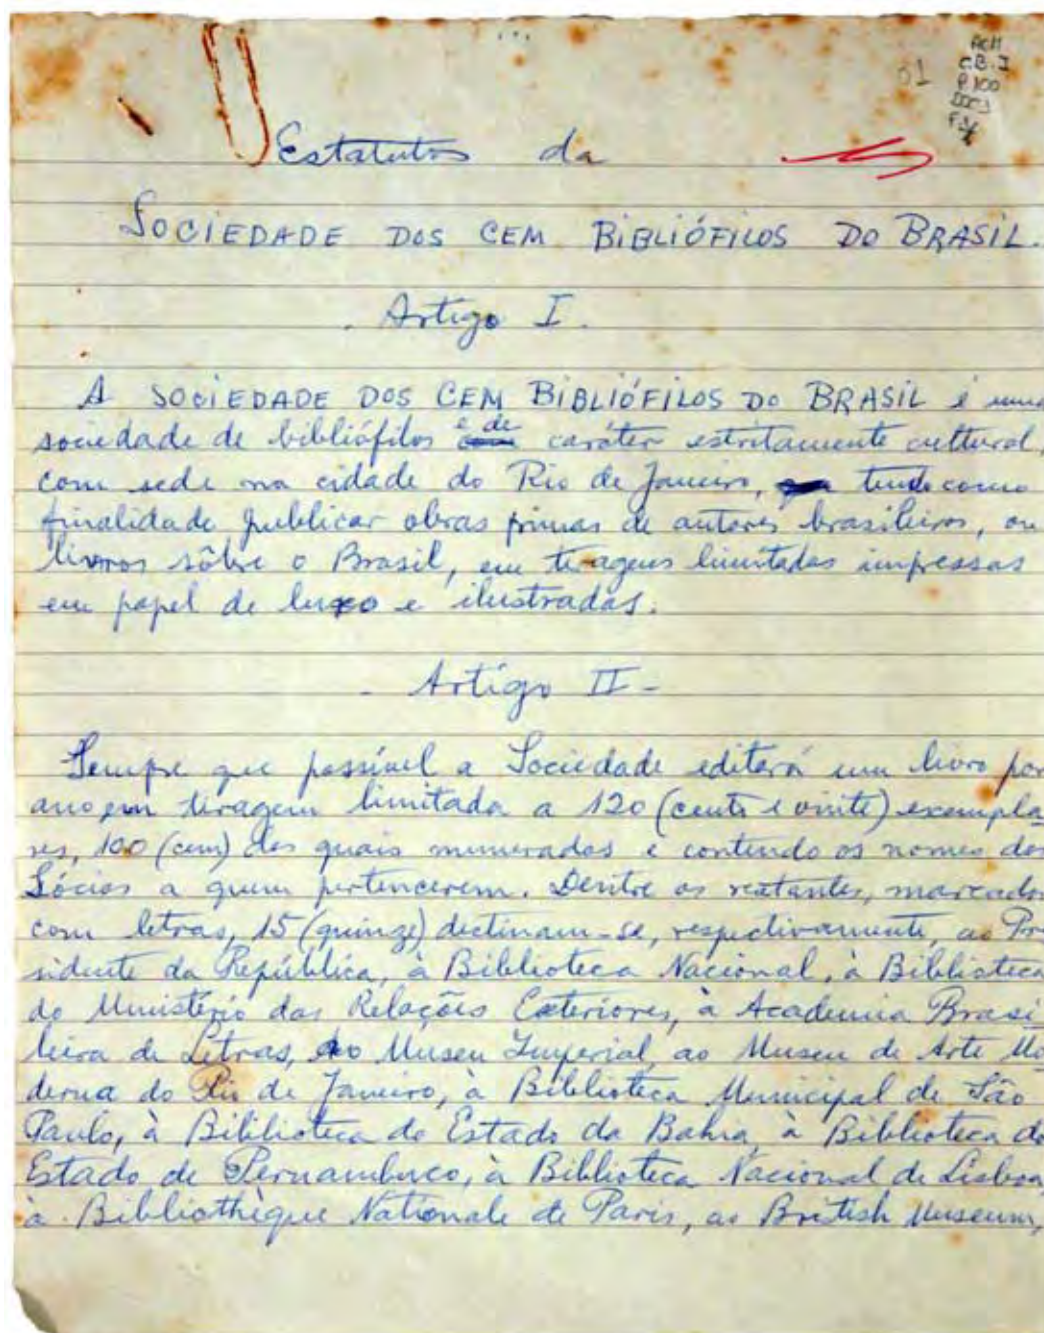 01
RCM
C.B.I
P.100
Estatutos da
SOCIEDADE DOS CEM BIBLIÓFILOS DO BRASIL.
. Artigo I.
A SOCIEDADE DOS CEM BIBLIÓFILOS DO BRASIL é uma
sociedade de bibliófilos e de caráter estritamente cultural,
com sede na cidade do Rio de Janeiro, tendo como
finalidade publicar obras primas de autores brasileiros, ou
livros sôbre o Brasil, em tiragens limitadas impressas
em papel de luxo e ilustradas.
- Artigo II -
Sempre que possível a Sociedade editará um livro por
ano em tiragem limitada a 120 (cento e vinte) exempla
res, 100 (cem) dos quais numerados e contendo os nomes dos
Sócios a quem pertencerem. Dentre os restantes, marcados
com letras, 15 (quinze) destinam-se, respectivamente, ao Pre
sidente da República, à Biblioteca Nacional, à Biblioteca
do Ministério das Relações Exteriores, à Academia Brasi
leira de Letras, ao Museu Imperial, ao Museu de Arte Mo
derna do Rio de Janeiro, à Biblioteca Municipal de São
Paulo, à Biblioteca do Estado da Bahia, à Biblioteca do
Estado de Pernambuco, à Biblioteca Nacional de Lisboa,
à Bibliothèque Nationale de Paris, ao British Museum,